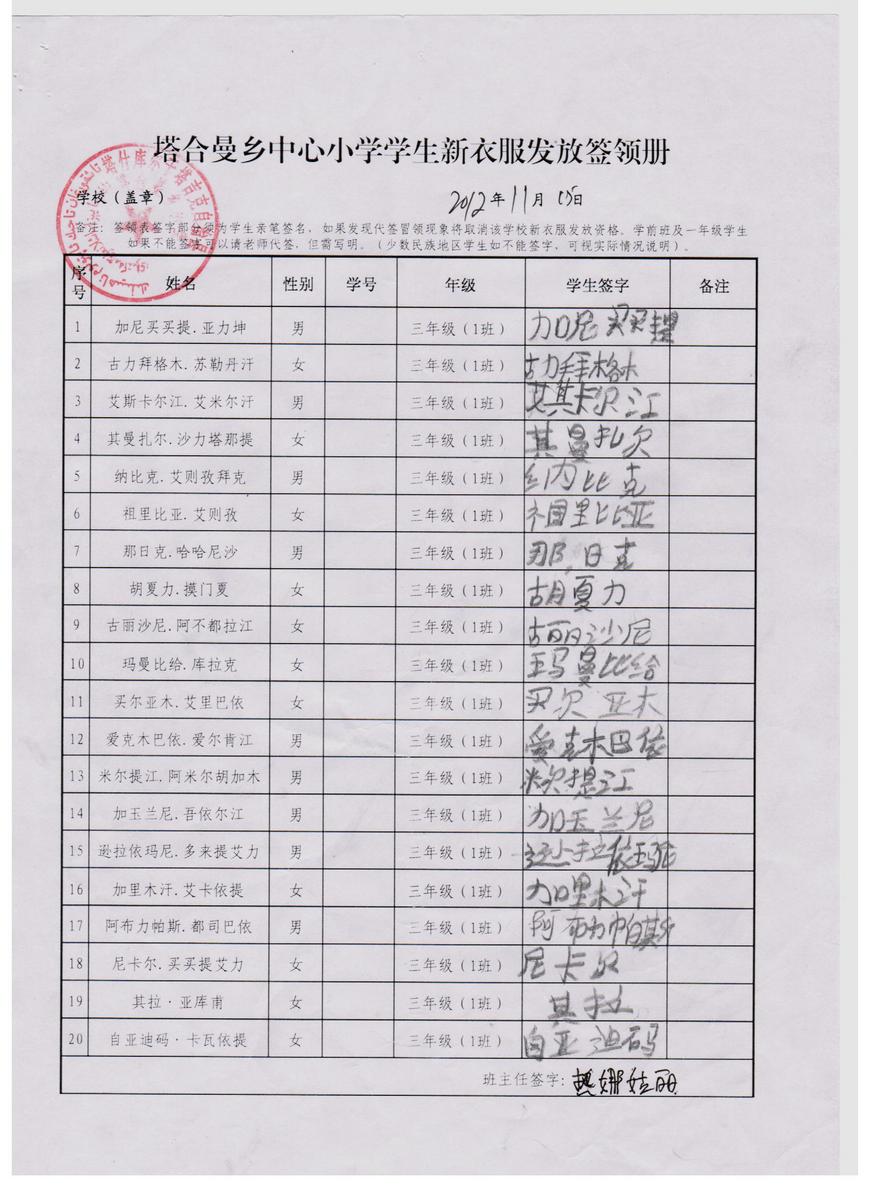 塔合曼乡中心小学学生新衣服发放签领册
学校（盖章）
2012年11月15日
备注：签领表签字部分须为学生亲笔签名，如果发现代签冒领现象将取消该学校新衣服发放资格。学前班及一年级学生
如果不能签字可以请老师代签，但需写明。（少数民族地区学生如不能签字，可视实际情况说明）。
序号 姓名 性别 学号 年级 学生签字 备注
1 加尼买买提.亚力坤 男 三年级（1班） 加尼买买提
2 古力拜格木.苏勒丹汗 女 三年级（1班） 古力拜格木
3 艾斯卡尔江.艾米尔汗 男 三年级（1班） 艾其卡尔江
4 其曼扎尔.沙力塔那提 女 三年级（1班） 其曼扎尔
5 纳比克.艾则孜拜克 男 三年级（1班） 纳比克
6 祖里比亚.艾则孜 女 三年级（1班） 祖里比亚
7 那日克.哈哈尼沙 男 三年级（1班） 那日克
8 胡夏力.摸门夏 女 三年级（1班） 胡夏力
9 古丽沙尼.阿不都拉江 女 三年级（1班） 古丽沙尼
10 玛曼比给.库拉克 女 三年级（1班） 玛曼比给
11 买尔亚木.艾里巴依 女 三年级（1班） 买尔亚木
12 爱克木巴依.爱尔肯江 男 三年级（1班） 爱克木巴依
13 米尔提江.阿米尔胡加木 男 三年级（1班） 米尔提江
14 加玉兰尼.吾依尔江 男 三年级（1班） 加玉兰尼
15 逊拉依玛尼.多来提艾力 男 三年级（1班） 逊拉依玛尼
16 加里木汗.艾卡依提 女 三年级（1班） 加里木汗
17 阿布力帕斯.都司巴依 男 三年级（1班） 阿布力帕斯
18 尼卡尔.买买提艾力 女 三年级（1班） 尼卡尔
19 其拉·亚库甫 女 三年级（1班） 其拉
20 自亚迪码·卡瓦依提 女 三年级（1班） 自亚迪码
班主任签字：